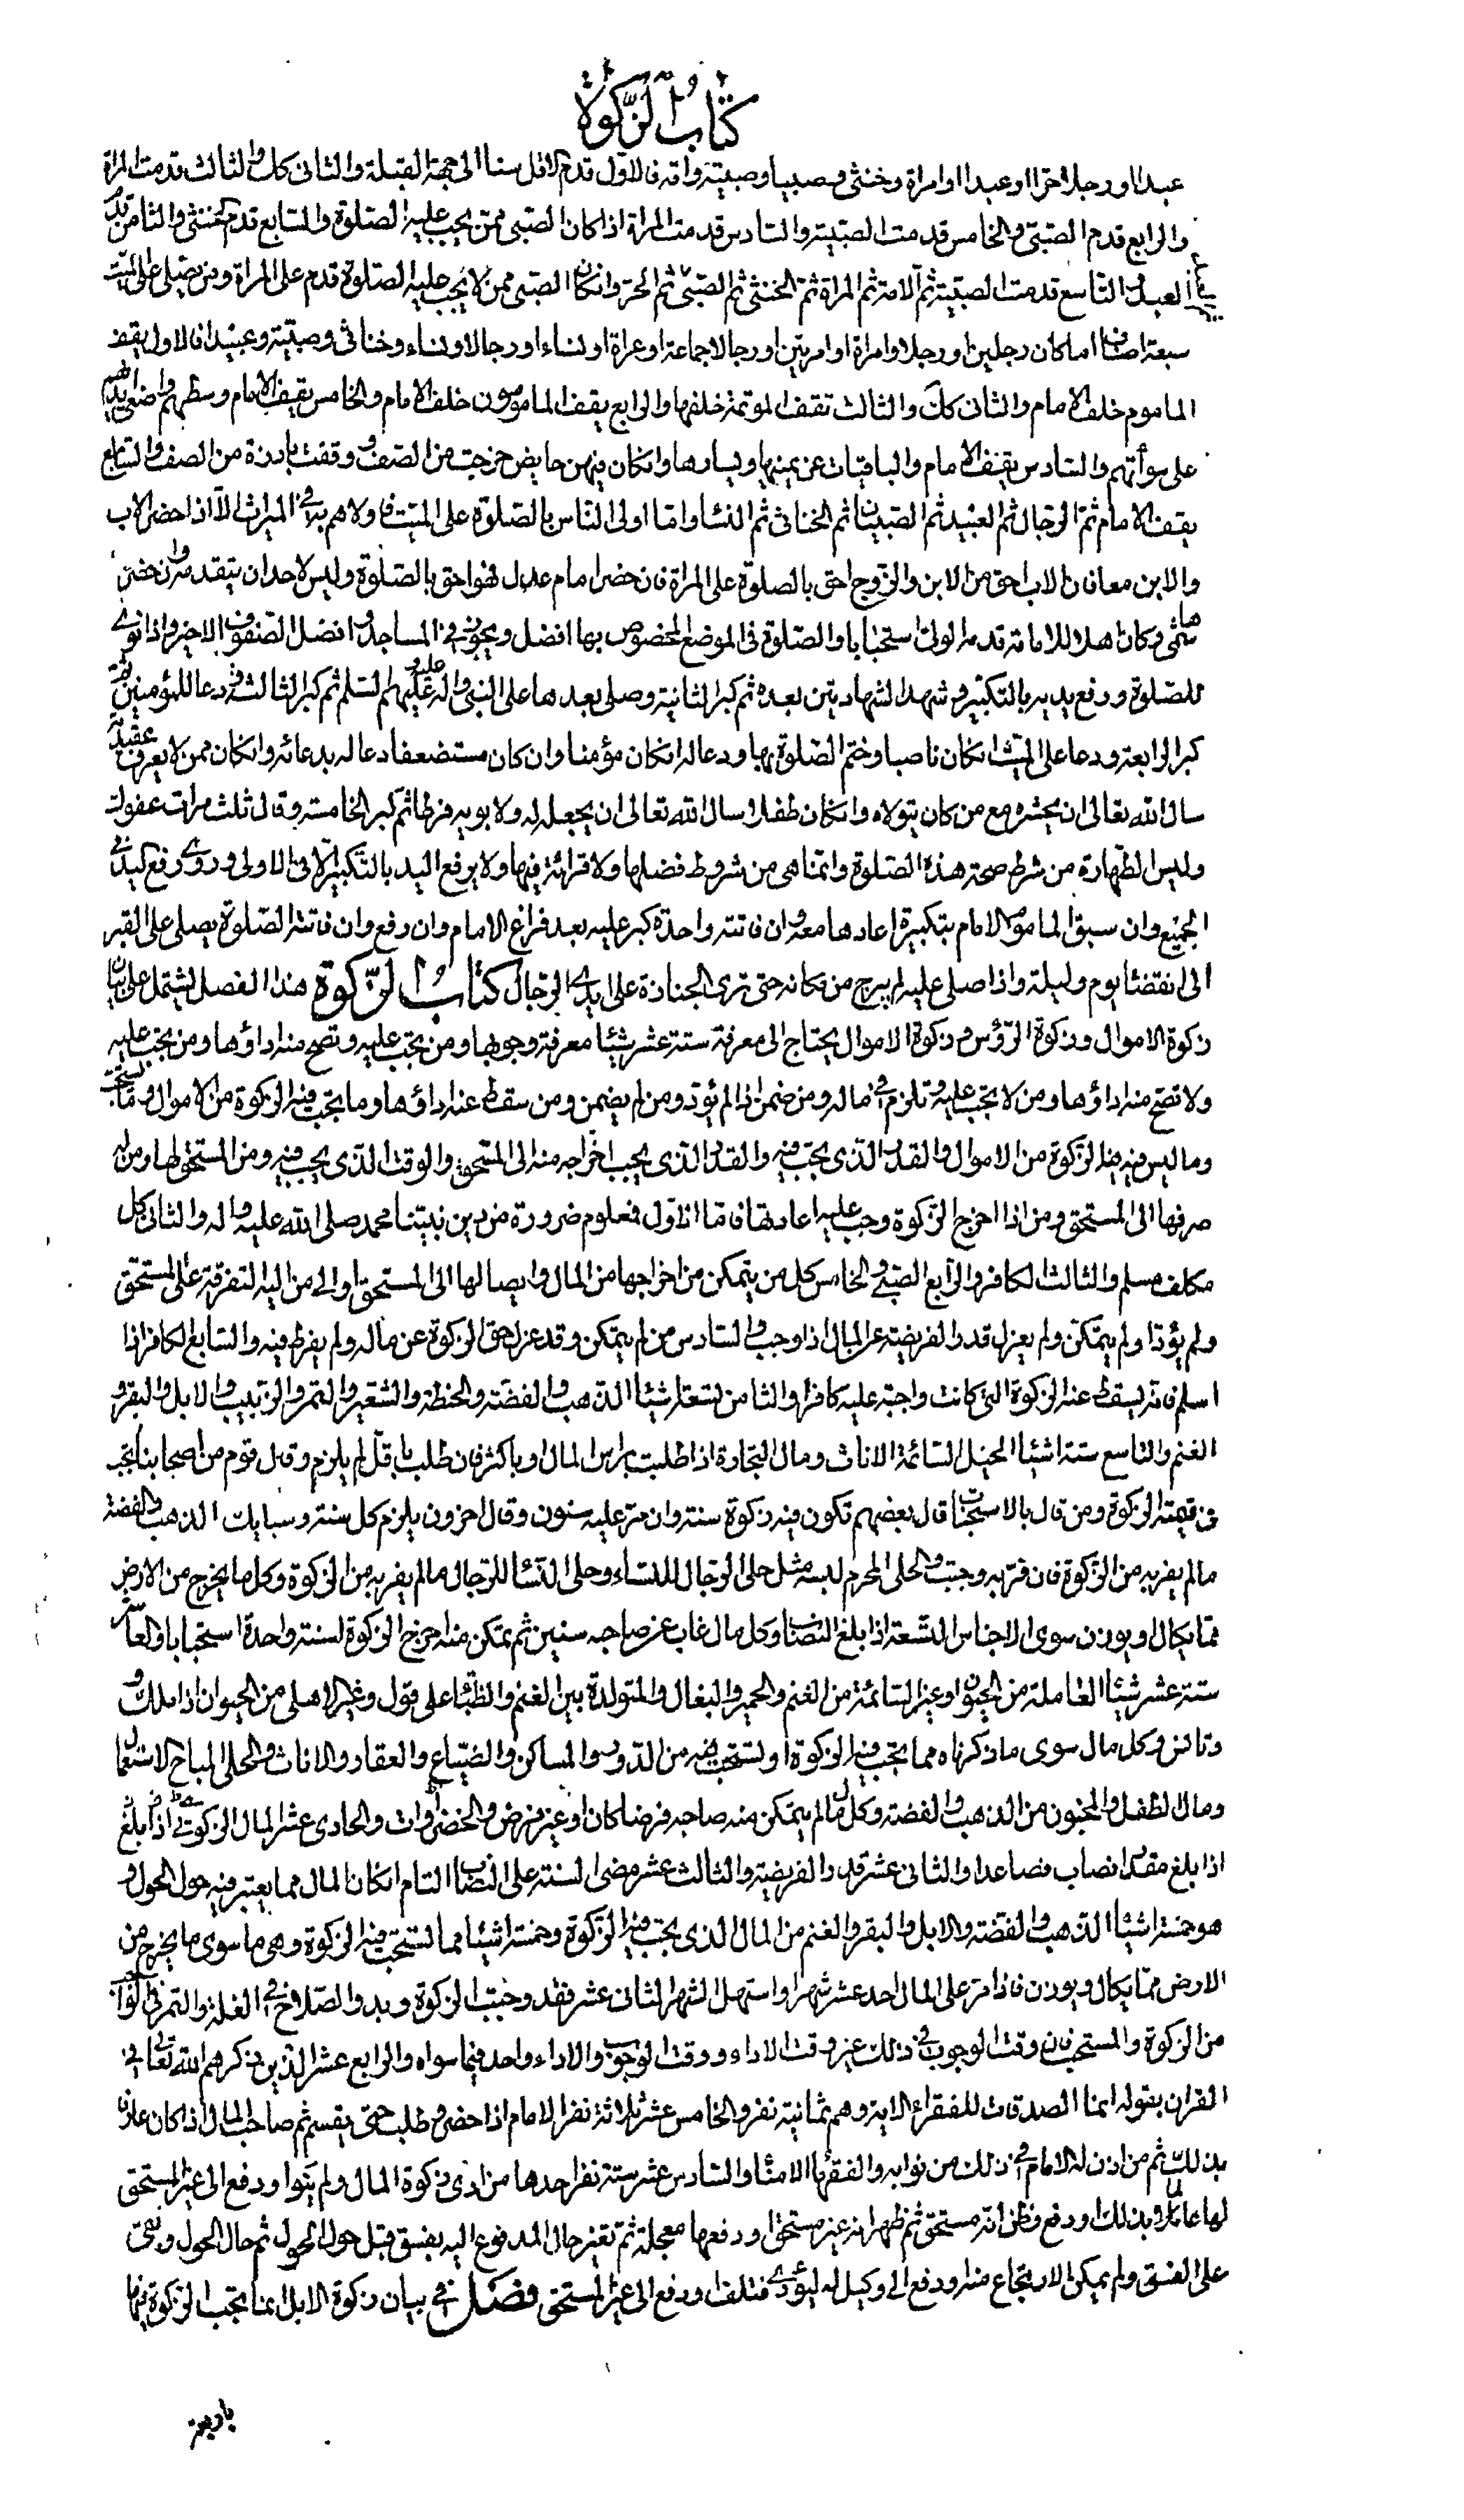 كتاب الزكوة
عبدا او رجلا حرا او عبدا او امراة وخنثى وصبيا وصبية وامة فالاول قدم الاقل سنا الى جهة القبلة والثانى كك والثالث قدمت المراة
والرابع قدم الصبى والخامس قدمت الصبية والسادس قدمت المراة اذا كان الصبى ممن يجب عليه الصلوة والسابع قدم الخنثى والثامن قدم
العبد والتاسع قدمت الصبية ثم الامة ثم المراة ثم الخنثى ثم الصبى ثم الحر وان كان الصبى ممن لا يجب عليه الصلوة قدم على المراة ومن يصلى على الميت
سبعة اصناف اما كان رجلين او رجلا وامراة او امرتين او رجالا جماعة او عراة او نساء او رجالا ونساء وخناثى وصبية وعبيدا فالاول يقف
الماموم خلف الامام والثانى كك والثالث تقف المؤتمة خلفها والرابع يقف المامومون خلف الامام والخامس يقف الامام وسطهم واضعى ايديهم
على سوأتهم والسادس يقف الامام والباقيات عن يمينها ويسارها وان كان فيهن حايض خرجت من الصف ووقفت بارزة من الصف والسابع
يقف الامام ثم الرجال ثم العبيد ثم الصبيان ثم الخناثى ثم النساء واما اولى الناس بالصلوة على الميت فاولاهم به فى الميراث الا اذا حضر الاب
والابن معا فان الاب احق من الابن والزوج احق بالصلوة على المراة فان حضر امام عدل فهو احق بالصلوة وليس لاحد ان يتقدمه وان حضر
هاشمى وكان اهلا للامامة قدمه الولى استحبابا والصلوة فى الموضع المخصوص بها افضل ويجوز فى المساجد وافضل الصفوف الاخير واذا نوى
للصلوة ورفع يديه بالتكبير وشهد الشهادتين بعده ثم كبر الثانية وصلى بعدها على النبى واله عليه وعليهم السلم ثم كبر الثالثة ودعا للمؤمنين ثم
كبر الرابعة ودعا على الميت ان كان ناصبا وختم الصلوة بها ودعا له ان كان مؤمنا وان كان مستضعفا دعا له بدعائه وان كان ممن لا يعرف عقيدته
سال الله تعالى ان يحشره مع من كان يتولاه وان كان طفلا سال الله تعالى ان يجعله له ولابويه فرطا ثم كبر الخامسة وقال ثلث مرات عفوك
وليس الطهارة من شرط صحة هذه الصلوة وانما هى من شروط فضلها ولا قرائة فيها ولا يرفع اليد بالتكبير الا فى الاولى وروى رفع اليد فى
الجميع وان سبق الماموم الامام بتكبيرة اعادها معه وان فاتته واحدة كبر عليه بعد فراغ الامام وان رفع وان فاتته الصلوة يصلى على القبر
الى انقضاء يوم وليلة واذا صلى عليه لم يبرح من مكانه حتى ترى الجنازة على ايدى الرجال كتاب الزكوة هذا الفصل يشتمل على بيان
زكوة الاموال وزكوة الرؤس وزكوة الاموال يحتاج الى معرفة ستة عشر شيئا معرفة وجوبها ومن يجب عليه وتصح منه اداؤها ومن يجب عليه
ولا تصح منه اداؤها ومن لا يجب عليه وتلزم فى ماله ومن ضمن اذا لم يؤد ومن لم يضمن ومن سقط عنه اداؤها وما يجب فيه الزكوة من الاموال وما يستحب
وما ليس فيه الزكوة من الاموال والقدر الذى يجب فيه والقدر الذى يجب اخراجه منه الى المستحق والوقت الذى يجب فيه ومن المستحق لها ومن له
صرفها الى المستحق ومن اذا اخرج الزكوة وجب عليه اعادتها فاما الاول فمعلوم ضرورة من دين نبينا محمد صلى الله عليه واله والثانى كل
مكلف مسلم والثالث الكافر والرابع الصبى والخامس كل من يتمكن من اخراجها من المال وايصالها الى المستحق او الى من اليه التفرقة على المستحق
ولم يؤد او لم يتمكن ولم يعزل قدر الفريضة عن المال اذا وجب والسادس من لم يتمكن وقد عزل حق الزكوة عن ماله ولم يفرط فيه والسابع الكافر اذا
اسلم فانه يسقط عنه الزكوة التى كانت واجبة عليه كافرا والثامن تسعة اشيئا الذهب والفضة والحنطة والشعير والتمر والزبيب والابل والبقر و
الغنم والتاسع ستة اشيئا الخيل السائمة الاناث ومال التجارة اذا طلبت براس المال او باكثر فان طلب باقل لم يلزم وقال قوم من اصحابنا يجب
فى قيمته الزكوة ومن قال بالاستحباب قال بعضهم تكون فيه زكوة سنة وان مر عليه سنون وقال اخرون يلزم كل سنة وسبايك الذهب والفضة
ما لم يفر به من الزكوة فان فر به وجبت والحلى المحرم لبسه مثل حلى الرجال للنساء وحلى النساء للرجال ما لم يفر به من الزكوة وكل ما يخرج من الارض
مما يكال ويوزن سوى الاجناس التسعة اذا بلغ النصاب وكل مال غاب عن صاحبه سنين ثم يمكن منه اخرج الزكوة لسنة واحدة استحبابا والعاشر
ستة عشر شيئا العاملة من الحيوان وغير السائمة من الغنم والحمير والبغال والمتولدة بين الغنم والظباء على قول وغير الاهلى من الحيوان اذا ملك و
تانس وكل مال سوى ما ذكرناه مما يجب فيه الزكوة او تستحب فيه من الدور والمساكن والضياع والعقار والاثاث والحلى المباح الاستعمال
ومال الطفل والمجنون من الذهب والفضة وكل مال لم يتمكن منه صاحبه فرضا كان او غير فرض والخضراوات والحادى عشر المال الزكوتى اذا بلغ
اذا بلغ مقدار نصاب فصاعدا والثانى عشر قدر الفريضة والثالث عشر مضى السنة على النصاب التام ان كان المال مما يعتبر فيه حول الحول و
هو خمسة اشيئا الذهب والفضة والابل والبقر والغنم من المال الذى يجب فيه الزكوة وخمسة اشيئا مما تستحب فيه الزكوة وهى ما سوى ما يخرج من
الارض مما يكال ويوزن فاذا مر على المال احد عشر شهرا واستهل الشهر الثانى عشر فقد وجبت الزكوة وبدو الصلاح فى الغلة والتمر فى الواجب
من الزكوة والمستحب فان وقت الوجوب فى ذلك غير وقت الاداء ووقت الوجوب والاداء واحد فيما سواه والرابع عشر الذين ذكرهم الله تعالى فى
القران بقوله انما الصدقات للفقراء الاية وهم ثمانية نفر والخامس عشر ثلاثة نفر الامام اذا حضر وطلب حتى يقسم ثم صاحب المال اذا كان عارفا
بذلك ثم من اذن له الامام فى ذلك من نوابه والفقهاء الامناء والسادس عشر ستة نفر احدها من ادى زكوة المال ولم ينو او دفع الى غير المستحق
لها عالما بذلك او دفع وظن انه مستحق ثم ظهر انه غير مستحق او دفعها معجلة ثم تغير حال المدفوع اليه بفسق قبل حول الحول ثم حال الحول وبقى
على الفسق ولم يمكن الارتجاع منه او دفع الى وكيل له ليؤدى فتلف او دفع الى غير المستحق فصل فى بيان زكوة الابل انما يجب الزكوة فيها
باربعة